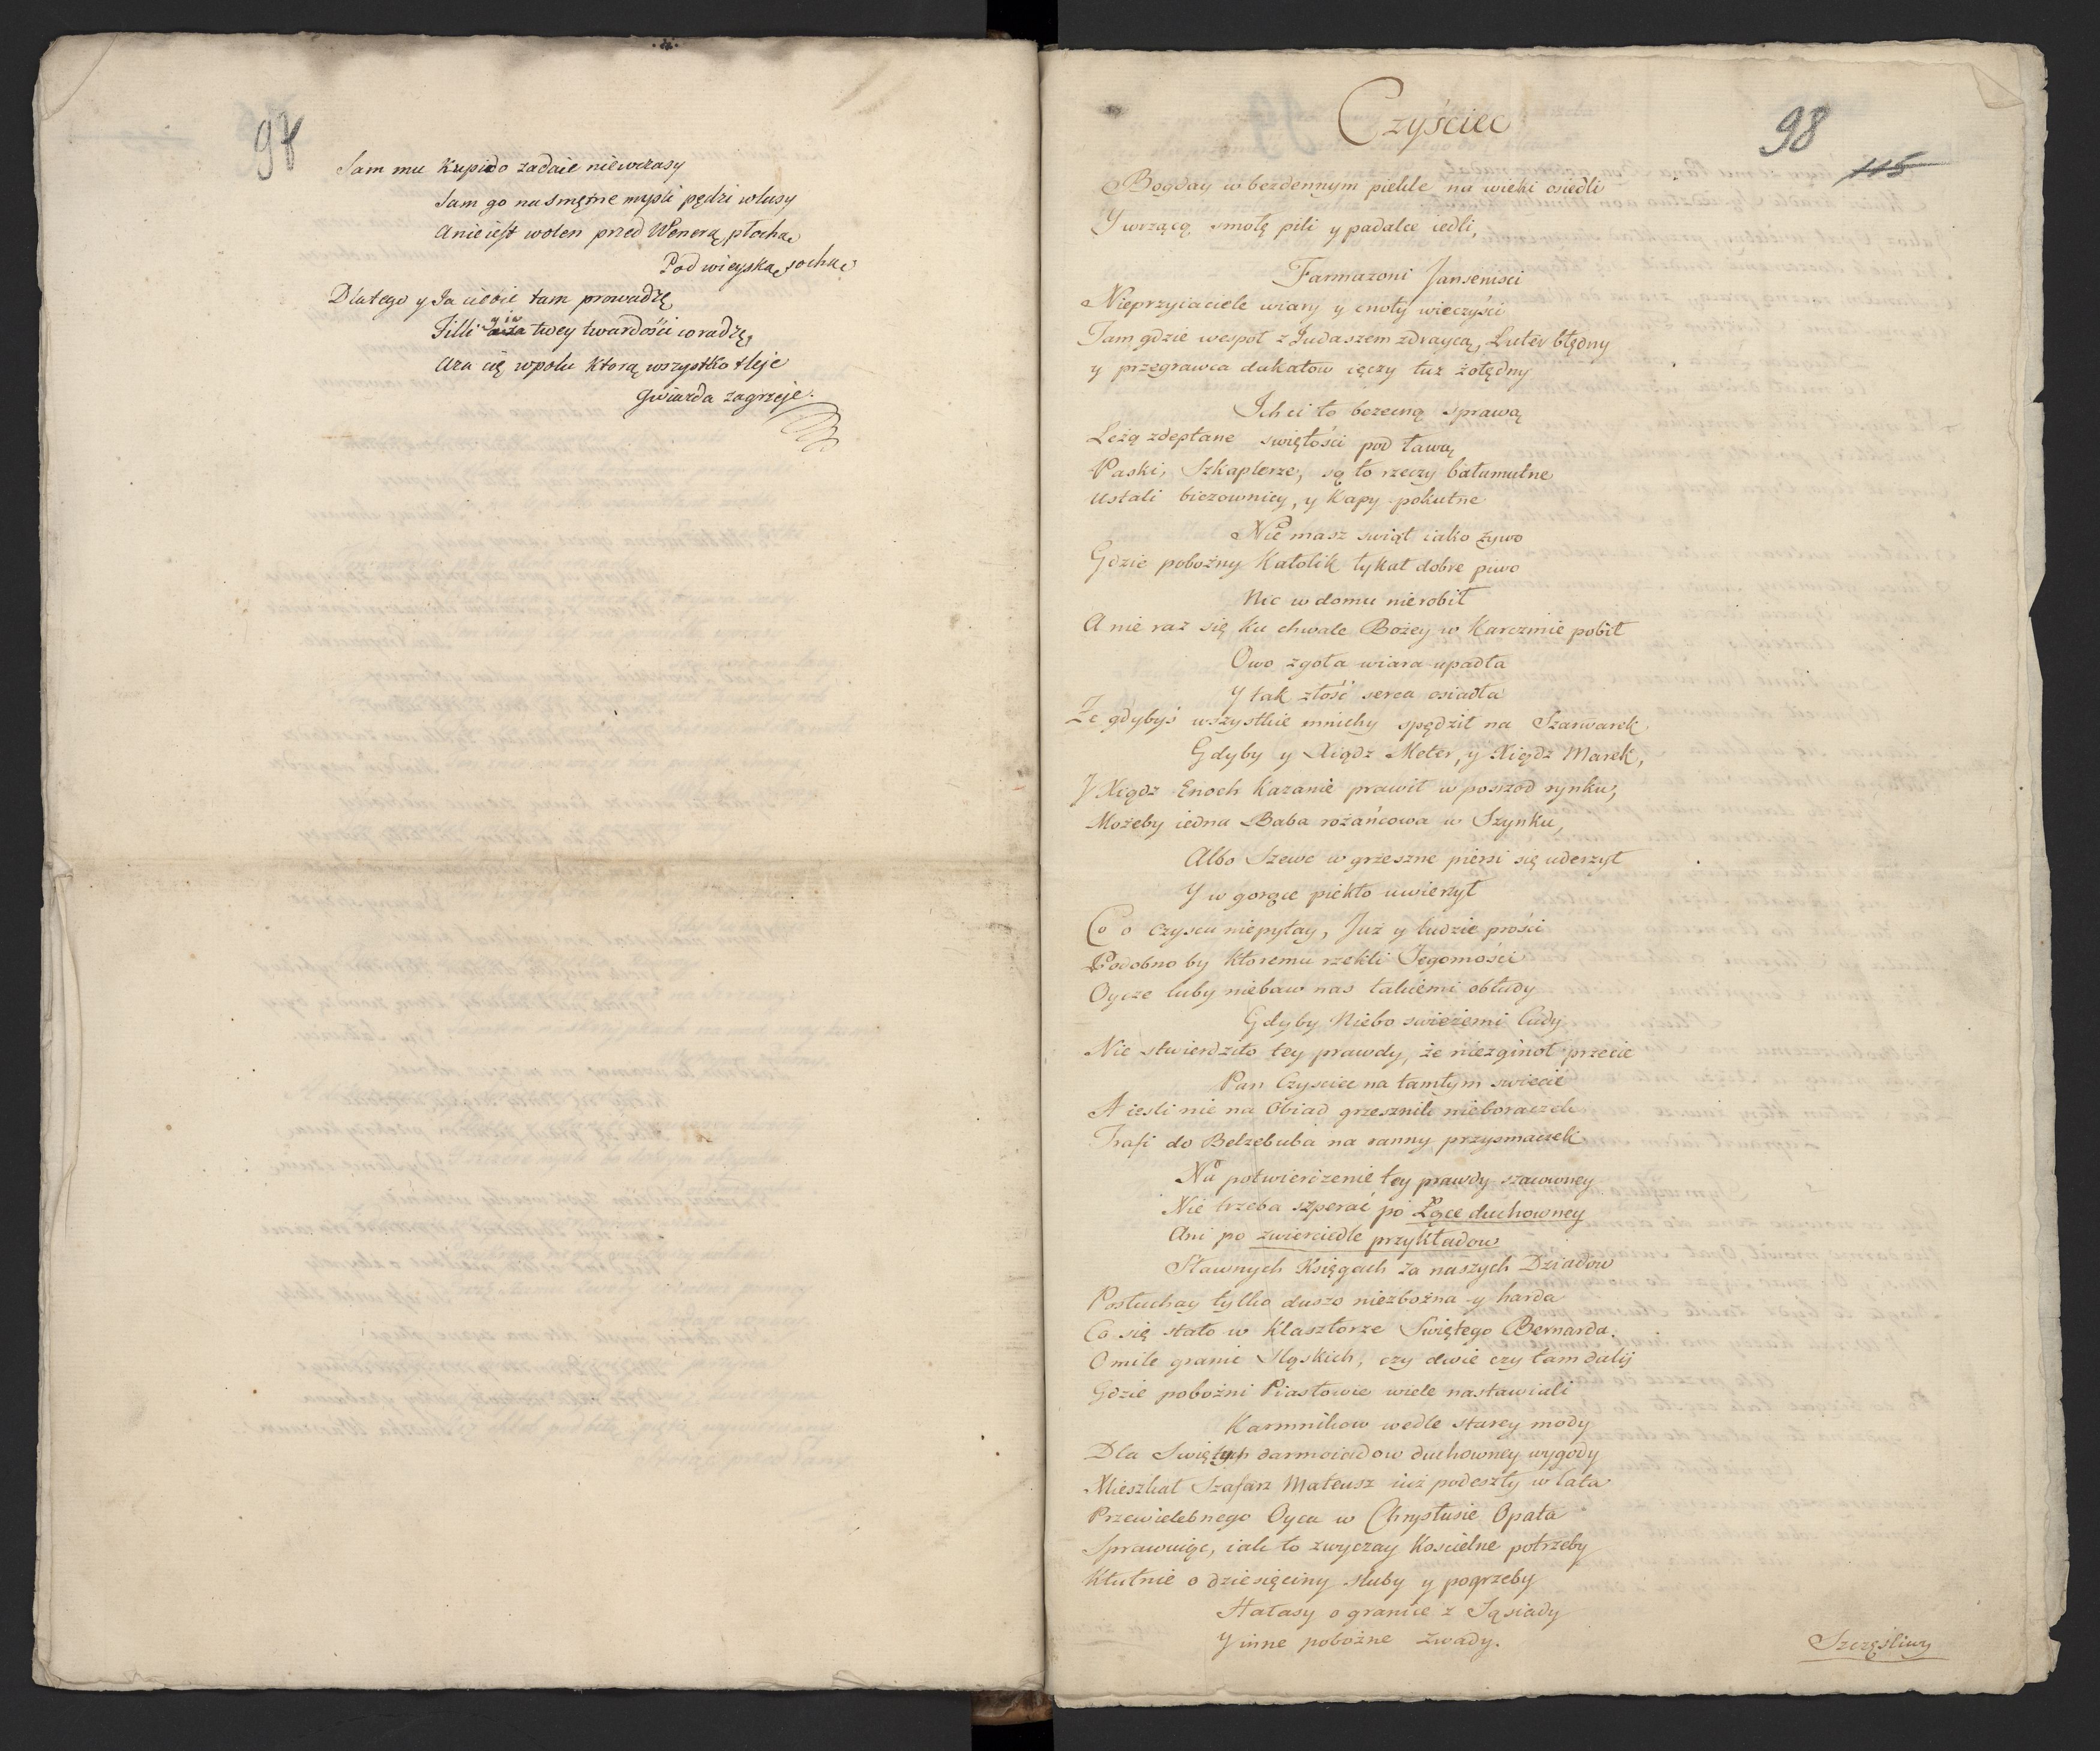 97
Sam mu Kupido zadaie niewczasy
Sam go na smętne mysli pędzi w lasy
A nie iest wolen przed Wenerą płochą
Pod wieyską sochą
Dlatego y Ja ciebie tam prowadzę
Filli twey twardości
Aza cię w polu Którą wszystko tleje
Gwiazda zagrzeje.
98
115
Czyściec
Bogday w bezdennym piekle na wieki osiedli
Y wrzącą smołę pili y padalce iedli,
Farmazoni Jansenisci
Nieprzyiaciele wiary y cnoty wieczyści
Tam gdzie wespoł z Judaszem zdraycą, Luter błędny
y przegrawca dukatow ięczy tuz żołędny
Ich ci to bezecną sprawą
Leżą zdeptane swiętości pod ławą
Paski, Szkaplerze, są to rzeczy bałamutne
Ustali biczownicy, y Kapy pokutne
Nie masz swiąt iako żywo
Gdzie pobożny Katolik łykał dobre piwo
Nic w domu nie robił
A nie raz się ku chwale Bożey w Karczmie pobił
Owo zgoła wiara upadła
Y tak złość serca osiadła
Że gdybyś wszystkie mnichy spędził na Szarwarek
Gdyby y Xiądz Meter, y Xiądz Marek,
Y Xiądz Enoch Kazanie prawił w posrzod rynku,
Możeby iedna Baba rożańcowa w Szynku,
Albo Szewc w grzeszne piersi się uderzył
Y w gorące piekło uwierzył
Co o czyscu niepytay, Już y ludzie prości
Podobno by Ktoremu rzekli Jegomości
Oycze luby niebaw nas takiemi obłudy
Gdyby Niebo swieżemi Cudy
Nie stwierdziło tey prawdy, że niezginoł przecie
Pan Czysciec na tamtym swiecie
A iesli nie na Obiad grzesznik nieboraczek
Trafi do Belzebuba na ranny przysmaczek
Na potwierdzenie tey prawdy szacowney
Nie trzeba szperać po Łące duchowney
Ani po zwierciedle przykładow
Sławnych Księgach za naszych Dziadow
Posłuchay tylko duszo niezbożna y harda
Co się stało w Klasztorze Swiętego Bernarda.
O mile granic Sląskich, czy dwie czy tam daliy
Gdzie pobożni Piastowie wiele nastawiali
Karmnikow wedle starey mody
Dla Swiętych darmoiadow duchowney wygody
Mieszkał Szafarz Mateusz iuż podeszły w lata
Przewielebnego Oyca w Chrystusie Opata
Sprawuiąc, iak to zwyczay Koscielne potrzeby
Kłutnie o dziesięciny sluby y pogrzeby
Hałasy o granice z Sąsiady
Y inne pobożne zwady.
Szczęśliwy